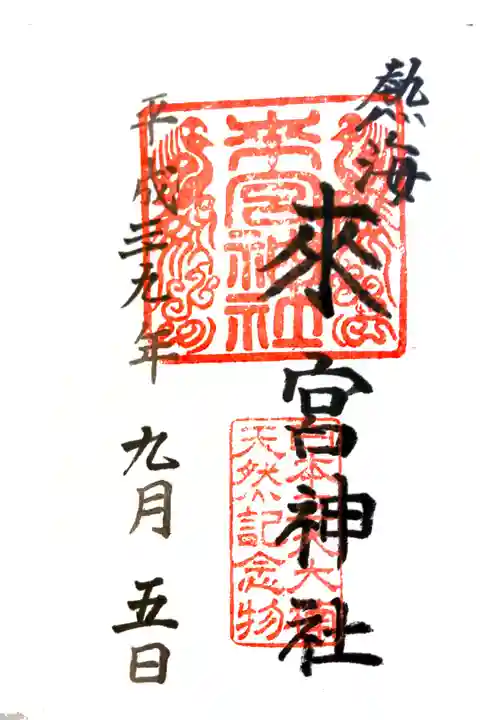 熱海
來宮神社
平成三九年 九月 五日
来宮神社
日本 大楠
天然記念物